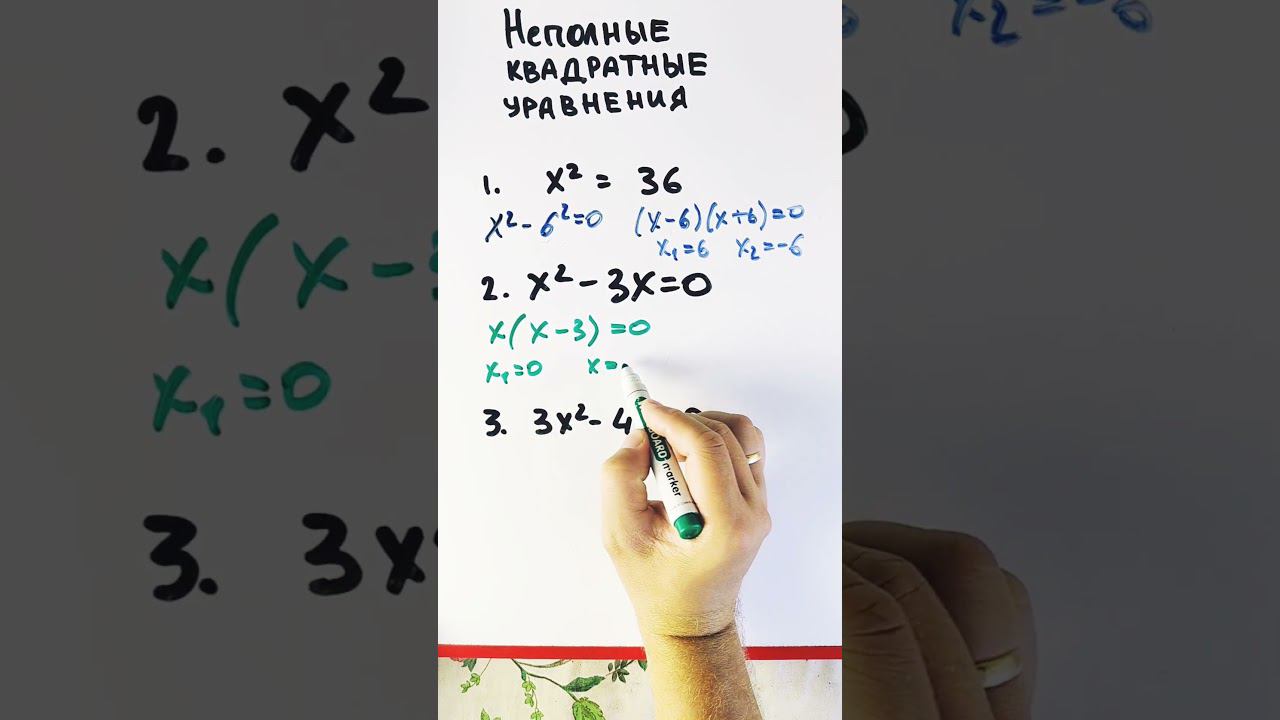 Неполные
квадратные
уравнения
1. x² = 36
x² - 6² = 0 (x-6)(x+6)=0
x₁=6 x₂=-6
2. x² - 3x = 0
x(x-3)=0
x₁=0 x=
3. 3x² - 4
BOARD
marker